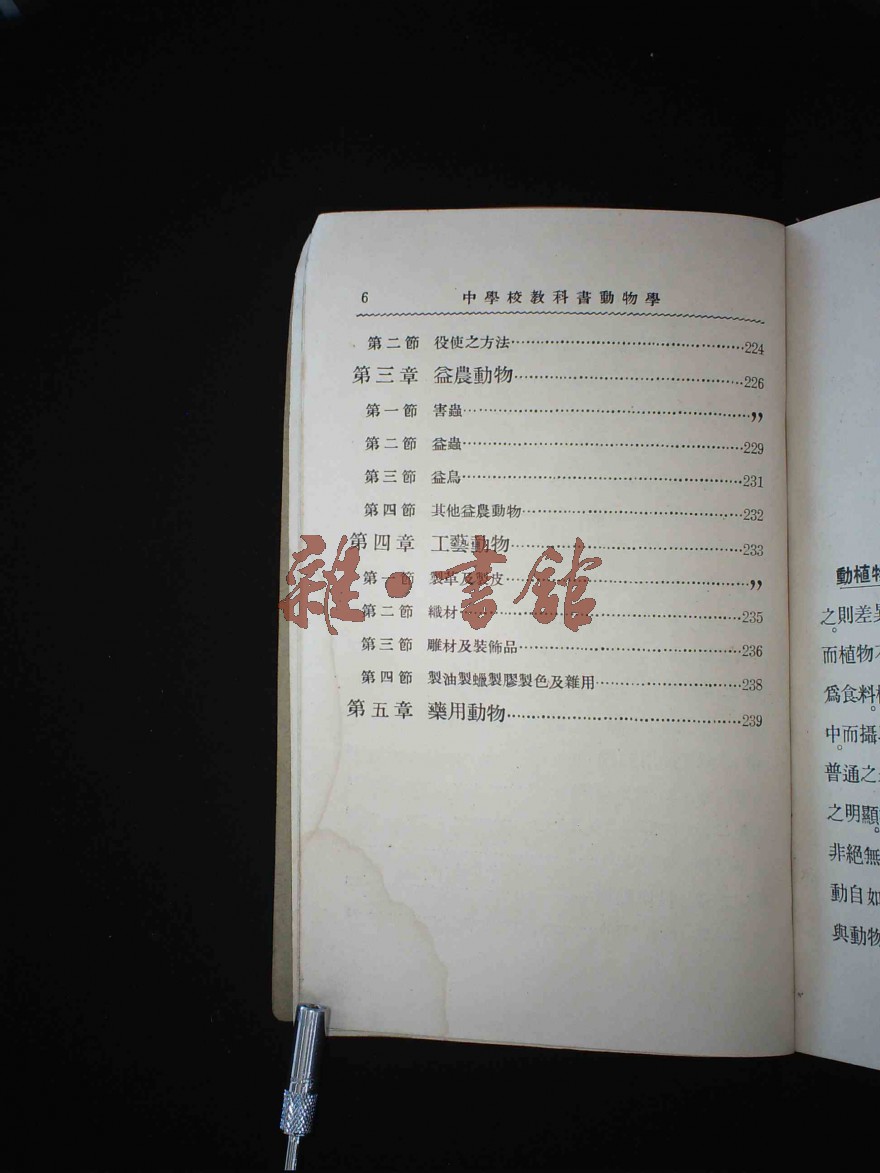 6 中學校教科書動物學
第二節 役使之方法 224
第三章 益農動物 226
第一節 害蟲 ,,
第二節 益蟲 229
第三節 益鳥 231
第四節 其他益農動物 232
第四章 工藝動物 233
第一節 製革及製皮 ,,
第二節 織材 235
第三節 雕材及裝飾品 236
第四節 製油製蠟製膠製色及雜用 238
第五章 藥用動物 239
雜·書館
動植物
之則差異
而植物不
爲食料
中。而攝
普通之
之明顯
非絕無
動自如
與動物